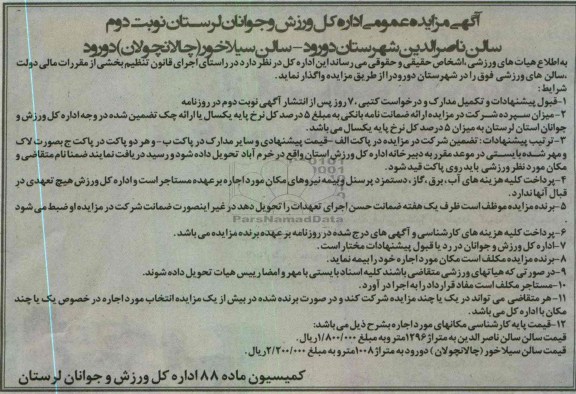 آگهی مزایده عمومی اداره کل ورزش و جوانان لرستان نوبت دوم
سالن ناصرالدین شهرستان دورود - سالن سیلاخور(چالانچولان)دورود
به اطلاع هیات های ورزشی ،اشخاص حقیقی و حقوقی می رساند این اداره کل در نظر دارد در راستای اجرای قانون تنظیم بخشی از مقررات مالی دولت
،سالن های ورزشی فوق را در شهرستان دورود را از طریق مزایده واگذار نماید.
شرایط :
۱-قبول پیشنهادات و تکمیل مدارک و درخواست کتبی ،۷ روز پس از انتشار آگهی نوبت دوم در روزنامه
۲-میزان سپرده شرکت در مزایده ارائه ضمانت نامه بانکی به مبلغ ۵ درصد کل نرخ پایه یکسال یا ارائه چک تضمین شده در وجه اداره کل ورزش و
جوانان استان لرستان به میزان ۵ درصد کل نرخ پایه یکسال می باشد.
۳-ترتیب پیشنهادات : تضمین شرکت در مزایده در پاکت الف -قیمت پیشنهادی و سایر مدارک در پاکت ب - و هر دو پاکت در پاکت ج بصورت لاک
و مهر شده بایستی در موعد مقرر به دبیرخانه اداره کل ورزش استان واقع در خرم آباد تحویل داده شود و رسید دریافت نمایند ضمنا نام متقاضی و
مکان مورد نظر ورزشی باید روی پاکت قید شود.
۴-پرداخت کلیه هزینه های آب، برق، گاز، دستمزد پرسنل و بیمه نیروهای مکان مورد اجاره بر عهده مستاجر است و اداره کل ورزش هیچ تعهدی در
قبال آنها ندارد.
۵-برنده مزایده موظف است ظرف یک هفته ضمانت حسن اجرای تعهدات را تحویل دهد در غیر اینصورت ضمانت شرکت در مزایده او ضبط می شود
۶-پرداخت کلیه هزینه های کارشناسی و آگهی های درج شده در روزنامه بر عهده برنده مزایده می باشد.
۷-اداره کل ورزش و جوانان در رد یا قبول پیشنهادات مختار است .
۸-برنده مزایده مکلف است مکان مورد اجاره خود را بیمه نماید.
۹-در صورتی که هیاتهای ورزشی متقاضی باشند کلیه اسناد بایستی با مهر و امضاء رییس هیات تحویل داده شوند.
۱۰-مستاجر مکلف است مفاد قرارداد را به اجرا در آورد.
۱۱-هر متقاضی می تواند در یک یا چند مزایده شرکت کند و در صورت برنده شده در بیش از یک مزایده انتخاب مورد اجاره در خصوص یک یا چند
مکان با اداره کل می باشد.
۱۲-قیمت پایه کارشناسی مکانهای مورد اجاره بشرح ذیل می باشد:
قیمت سالن سالن ناصر الدین به متراژ ۱۲۹۶متر و به مبلغ ۱/۸۰۰/۰۰۰ریال.
قیمت سالن سیلاخور (چالانچولان ) دورود به متراژ ۱۰۰۸متر و به مبلغ ۲/۲۰۰/۰۰۰ریال.
کمیسیون ماده ۸۸ اداره کل ورزش و جوانان لرستان
ParsNamadData